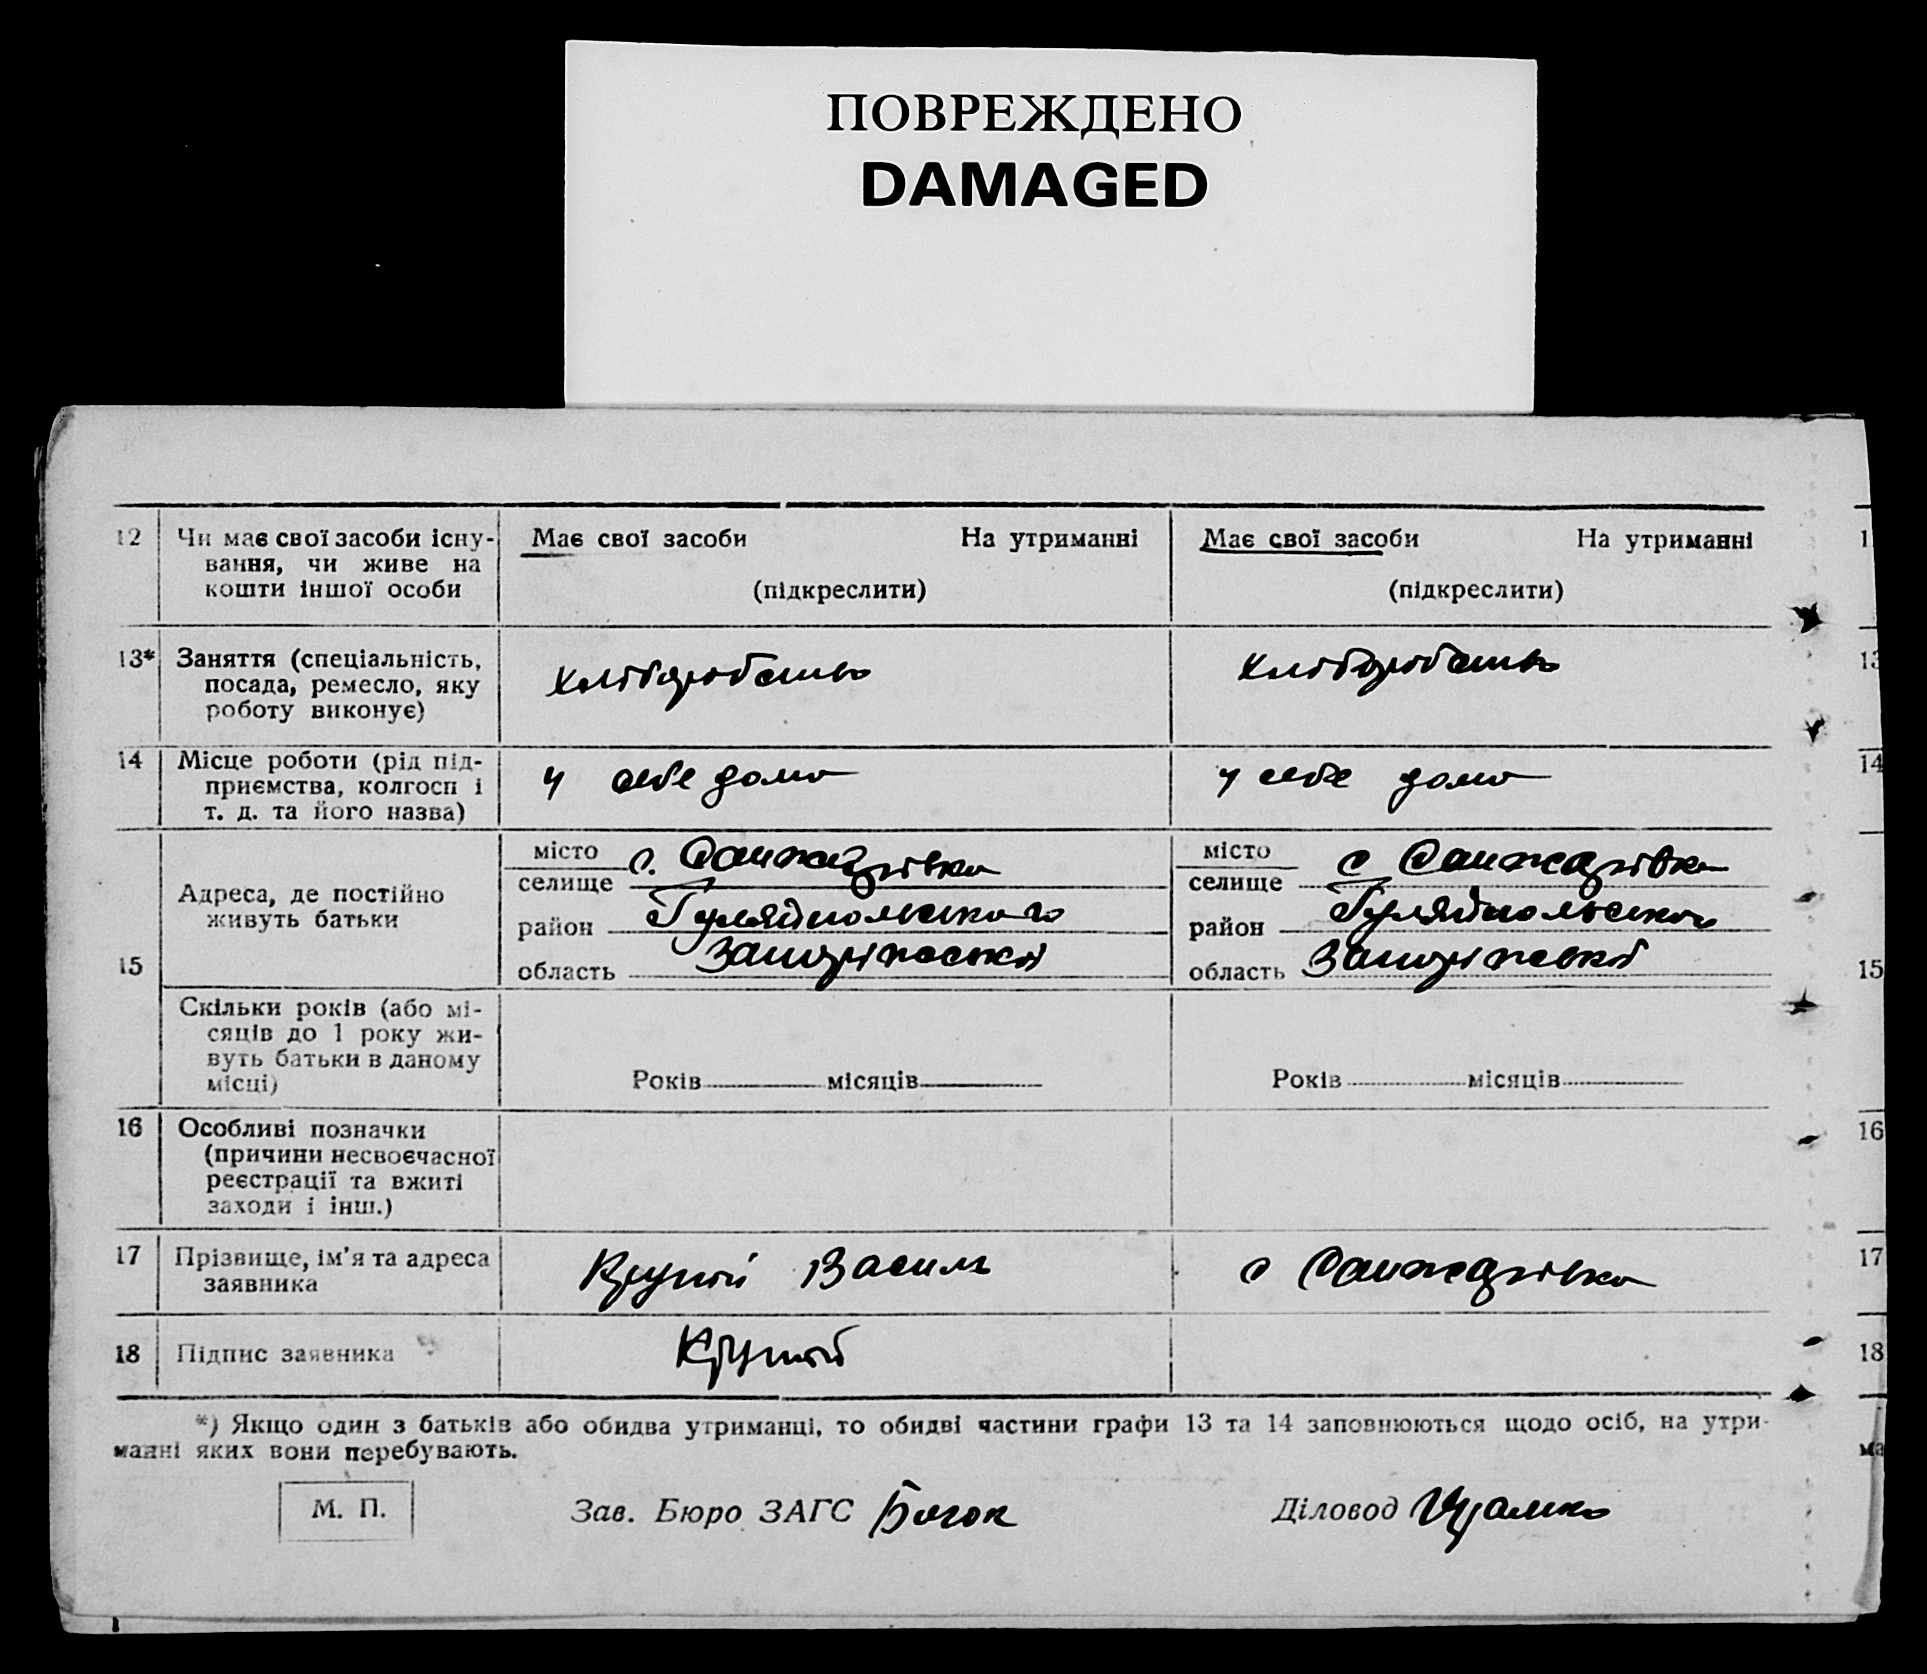 ПОВРЕЖДЕНО
DAMAGED
12 Чи має свої засоби існу- Має свої засоби На утриманні Має свої засоби На утриманні 1
вання, чи живе на
кошти іншої особи (підкреслити) (підкреслити)
13* Заняття (спеціальність, хліборобство хліборобство 13
посада, ремесло, яку
роботу виконує)
14 Місце роботи (рід під- у себе дома у себе дома 14
приємства, колгосп і
т. д. та його назва)
15 Адреса, де постійно місто с. Санжарівка місто с Санжарівка 15
живуть батьки селище селище
район Гуляйпольського район Гуляйпольського
область Запоріжської область Запоріжської
Скільки років (або мі-
сяців до 1 року жи-
вуть батьки в даному
місці) Років місяців Років місяців
16 Особливі позначки 16
(причини несвоєчасної
реєстрації та вжиті
заходи і інш.)
17 Прізвище, ім'я та адреса Крупій Василь с Санжарівка 17
заявника
18 Підпис заявника Крупій 18
*) Якщо один з батьків або обидва утриманці, то обидві частини графи 13 та 14 заповнюються щодо осіб, на утри-
манні яких вони перебувають. ма
М. П. Зав. Бюро ЗАГС Діловод